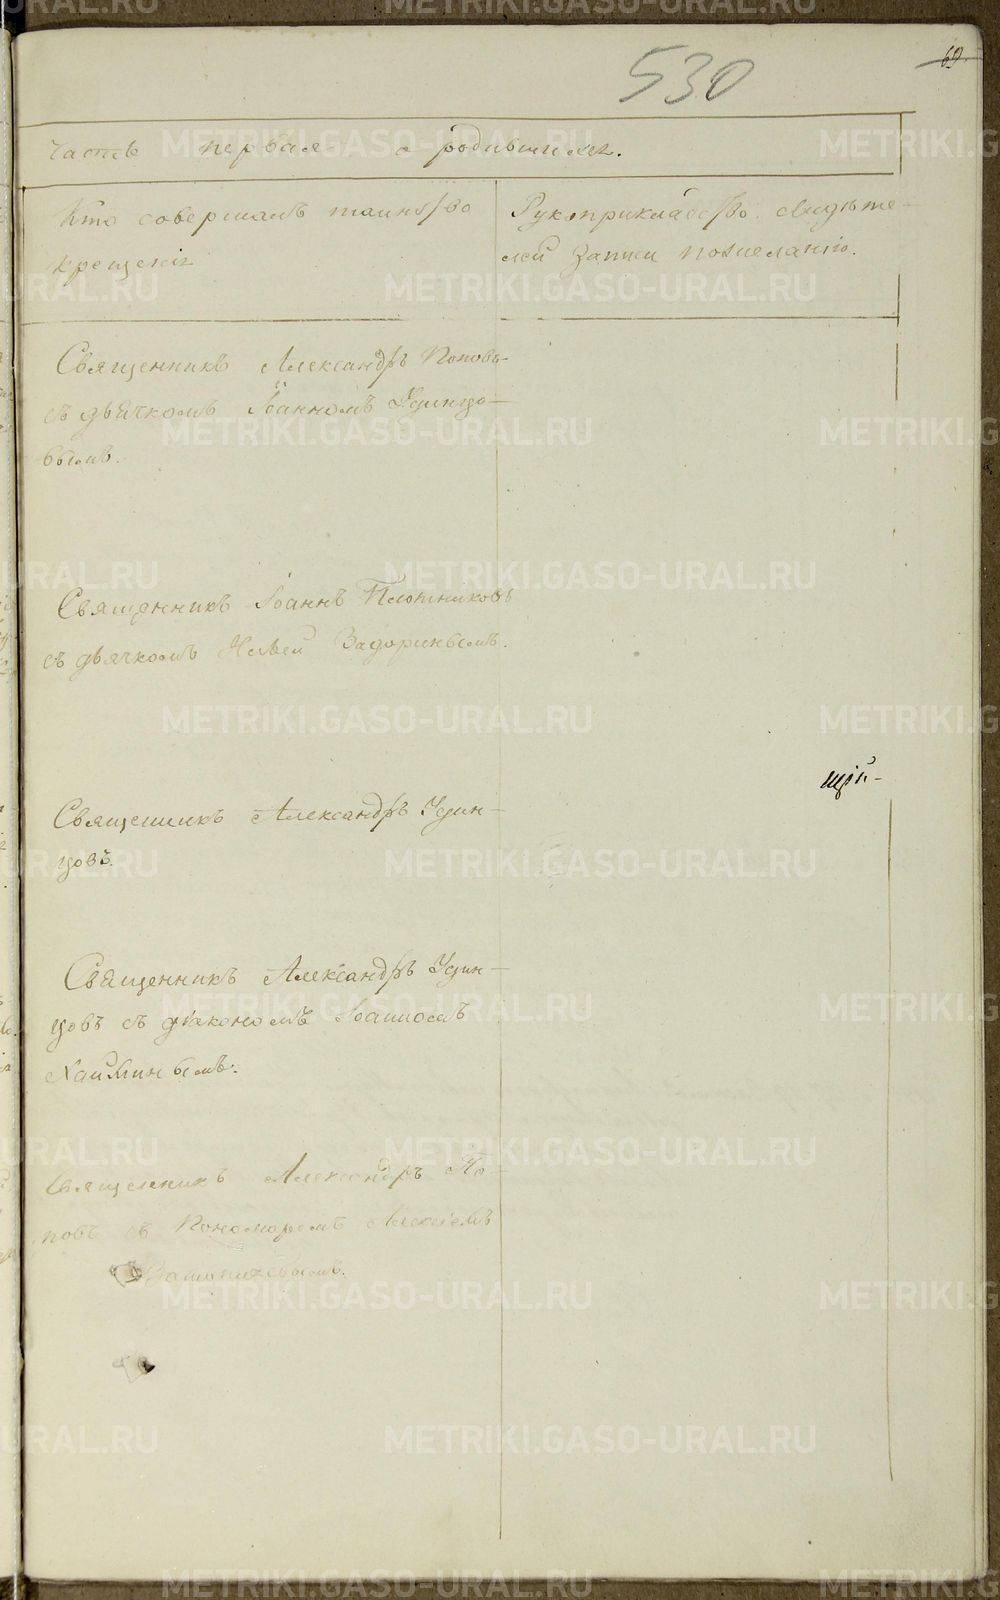 530
69.
Часть первая о родившихся.
Кто совершалъ таинство
крещенія
Рукоприкладство свидѣте-
лей записи по желанію.
Священникъ Александръ Поповъ
съ дьячкомъ Іоанномъ Удинцо-
вымъ.
Священникъ Іоаннъ Плотниковъ
съ дьячкомъ Задоринымъ.
Священникъ Александръ Удин-
цовъ.
Священникъ Александръ Удин-
цовъ съ діакономъ Іоанномъ
Хайминымъ.
Священникъ Александръ По-
повъ съ пономаремъ Алексіемъ